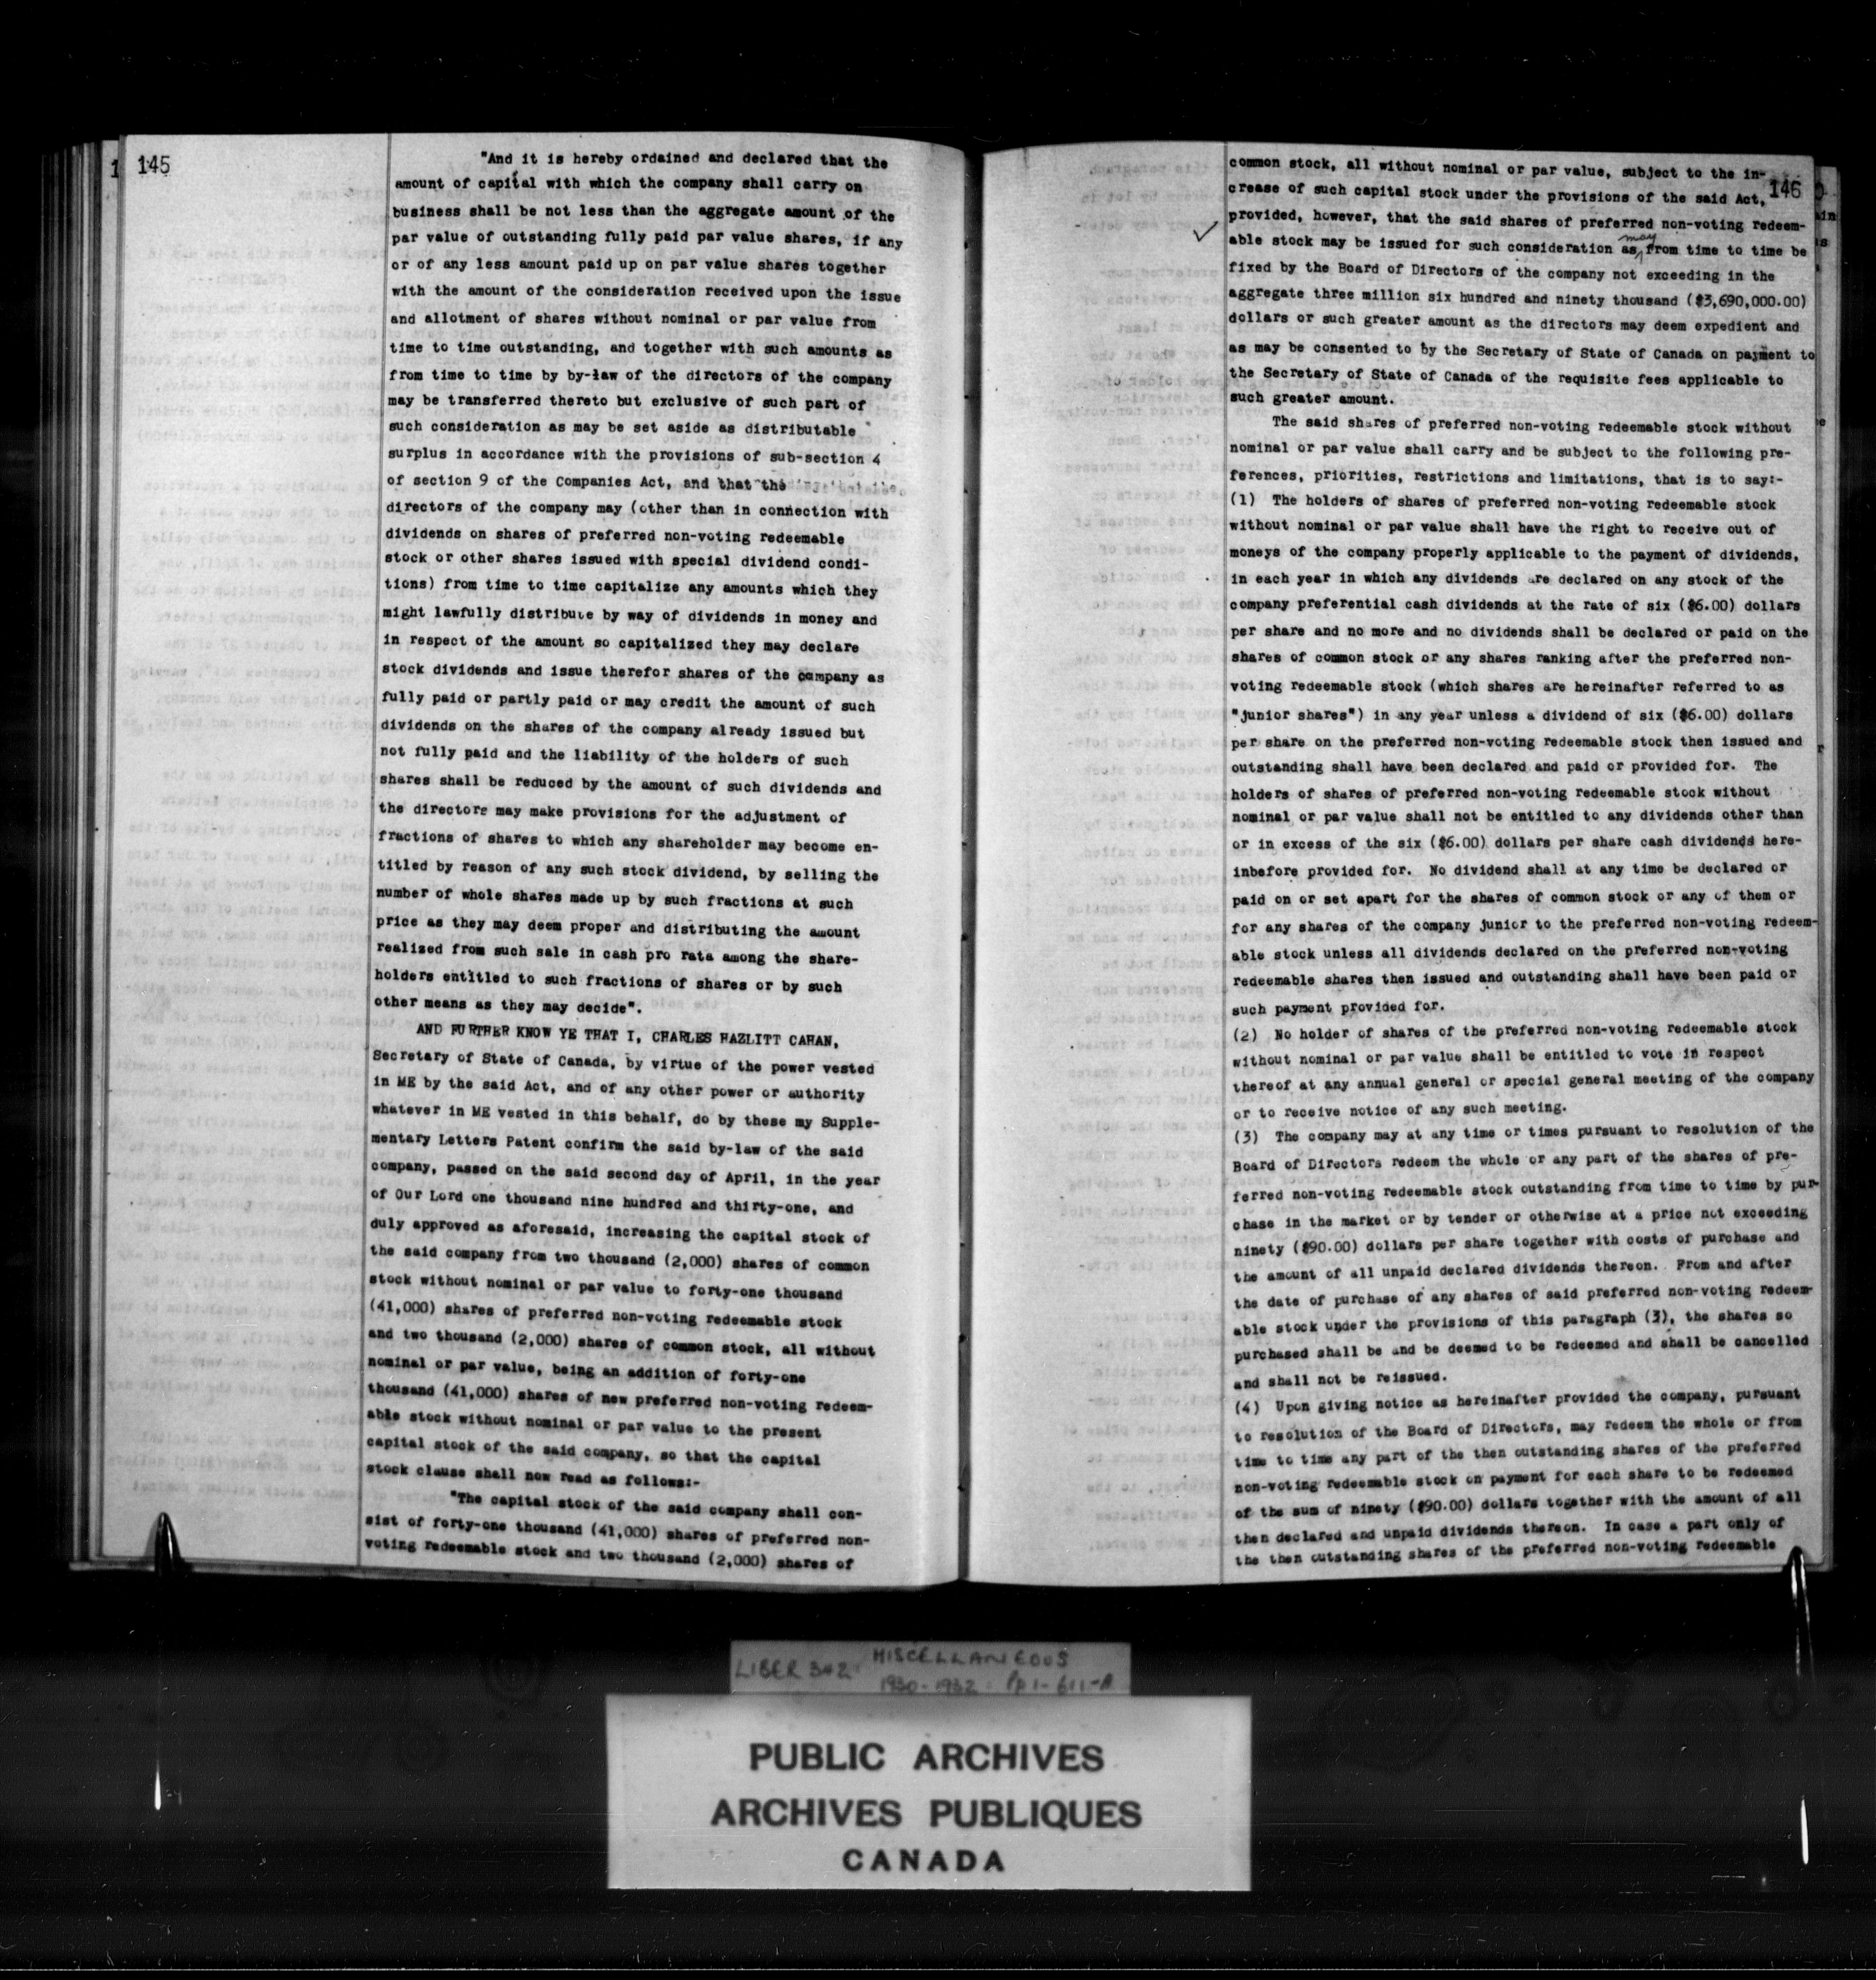 145
"And it is hereby ordained and declared that the
amount of capital with which the company shall carry on
business shall be not less than the aggregate amount of the
par value of outstanding fully paid par value shares, if any
or of any less amount paid up on par value shares together
with the amount of the consideration received upon the issue
and allotment of shares without nominal or par value from
time to time outstanding, and together with such amounts as
from time to time by by-law of the directors of the company
may be transferred thereto but exclusive of such part of
such consideration as may be set aside as distributable
surplus in accordance with the provisions of sub-section 4
of section 9 of the Companies Act, and that the
directors of the company may (other than in connection with
dividends on shares of preferred non-voting redeemable
stock or other shares issued with special dividend condi-
tions) from time to time capitalize any amounts which they
might lawfully distribute by way of dividends in money and
in respect of the amount so capitalized they may declare
stock dividends and issue therefor shares of the company as
fully paid or partly paid or may credit the amount of such
dividends on the shares of the company already issued but
not fully paid and the liability of the holders of such
shares shall be reduced by the amount of such dividends and
the directors may make provisions for the adjustment of
fractions of shares to which any shareholder may become en-
titled by reason of any such stock dividend, by selling the
number of whole shares made up by such fractions at such
price as they may deem proper and distributing the amount
realized from such sale in cash pro rata among the share-
holders entitled to such fractions of shares or by such
other means as they may decide".
AND FURTHER KNOW YE THAT I, CHARLES HAZLITT CAHAN,
Secretary of State of Canada, by virtue of the power vested
in ME by the said Act, and of any other power or authority
whatever in ME vested in this behalf, do by these my Supple-
mentary Letters Patent confirm the said by-law of the said
company, passed on the said second day of April, in the year
of Our Lord one thousand nine hundred and thirty-one, and
duly approved as aforesaid, increasing the capital stock of
the said company from two thousand (2,000) shares of common
stock without nominal or par value to forty-one thousand
(41,000) shares of preferred non-voting redeemable stock
and two thousand (2,000) shares of common stock, all without
nominal or par value, being an addition of forty-one
thousand (41,000) shares of new preferred non-voting redeem-
able stock without nominal or par value to the present
capital stock of the said company, so that the capital
stock clause shall now read as follows:-
"The capital stock of the said company shall con-
sist of forty-one thousand (41,000) shares of preferred non-
voting redeemable stock and two thousand (2,000) shares of
146
common stock, all without nominal or par value, subject to the in-
crease of such capital stock under the provisions of the said Act,
provided, however, that the said shares of preferred non-voting redeem-
able stock may be issued for such consideration as may from time to time be
fixed by the Board of Directors of the company not exceeding in the
aggregate three million six hundred and ninety thousand ($3,690,000.00)
dollars or such greater amount as the directors may deem expedient and
as may be consented to by the Secretary of State of Canada on payment to
the Secretary of State of Canada of the requisite fees applicable to
such greater amount.
The said shares of preferred non-voting redeemable stock without
nominal or par value shall carry and be subject to the following pre-
ferences, priorities, restrictions and limitations, that is to say:-
(1) The holders of shares of preferred non-voting redeemable stock
without nominal or par value shall have the right to receive out of
moneys of the company properly applicable to the payment of dividends,
in each year in which any dividends are declared on any stock of the
company preferential cash dividends at the rate of six ($6.00) dollars
per share and no more and no dividends shall be declared or paid on the
shares of common stock or any shares ranking after the preferred non-
voting redeemable stock (which shares are hereinafter referred to as
"junior shares") in any year unless a dividend of six ($6.00) dollars
per share on the preferred non-voting redeemable stock then issued and
outstanding shall have been declared and paid or provided for. The
holders of shares of preferred non-voting redeemable stock without
nominal or par value shall not be entitled to any dividends other than
or in excess of the six ($6.00) dollars per share cash dividends here-
inbefore provided for. No dividend shall at any time be declared or
paid on or set apart for the shares of common stock or any of them or
for any shares of the company junior to the preferred non-voting redeem-
able stock unless all dividends declared on the preferred non-voting
redeemable shares then issued and outstanding shall have been paid or
such payment provided for.
(2) No holder of shares of the preferred non-voting redeemable stock
without nominal or par value shall be entitled to vote in respect
thereof at any annual general or special general meeting of the company
or to receive notice of any such meeting.
(3) The company may at any time or times pursuant to resolution of the
Board of Directors redeem the whole or any part of the shares of pre-
ferred non-voting redeemable stock outstanding from time to time by pur-
chase in the market or by tender or otherwise at a price not exceeding
ninety ($90.00) dollars per share together with costs of purchase and
the amount of all unpaid declared dividends thereon. From and after
the date of purchase of any shares of said preferred non-voting redeem-
able stock under the provisions of this paragraph (3), the shares so
purchased shall be and be deemed to be redeemed and shall be cancelled
and shall not be reissued.
(4) Upon giving notice as hereinafter provided the company, pursuant
to resolution of the Board of Directors, may redeem the whole or from
time to time any part of the then outstanding shares of the preferred
non-voting redeemable stock on payment for each share to be redeemed
of the sum of ninety ($90.00) dollars together with the amount of all
then declared and unpaid dividends thereon. In case a part only of
the then outstanding shares of the preferred non-voting redeemable
LIBER 342 MISCELLANEOUS
1930-1932 Pp 1-611-A
PUBLIC ARCHIVES
ARCHIVES PUBLIQUES
CANADA